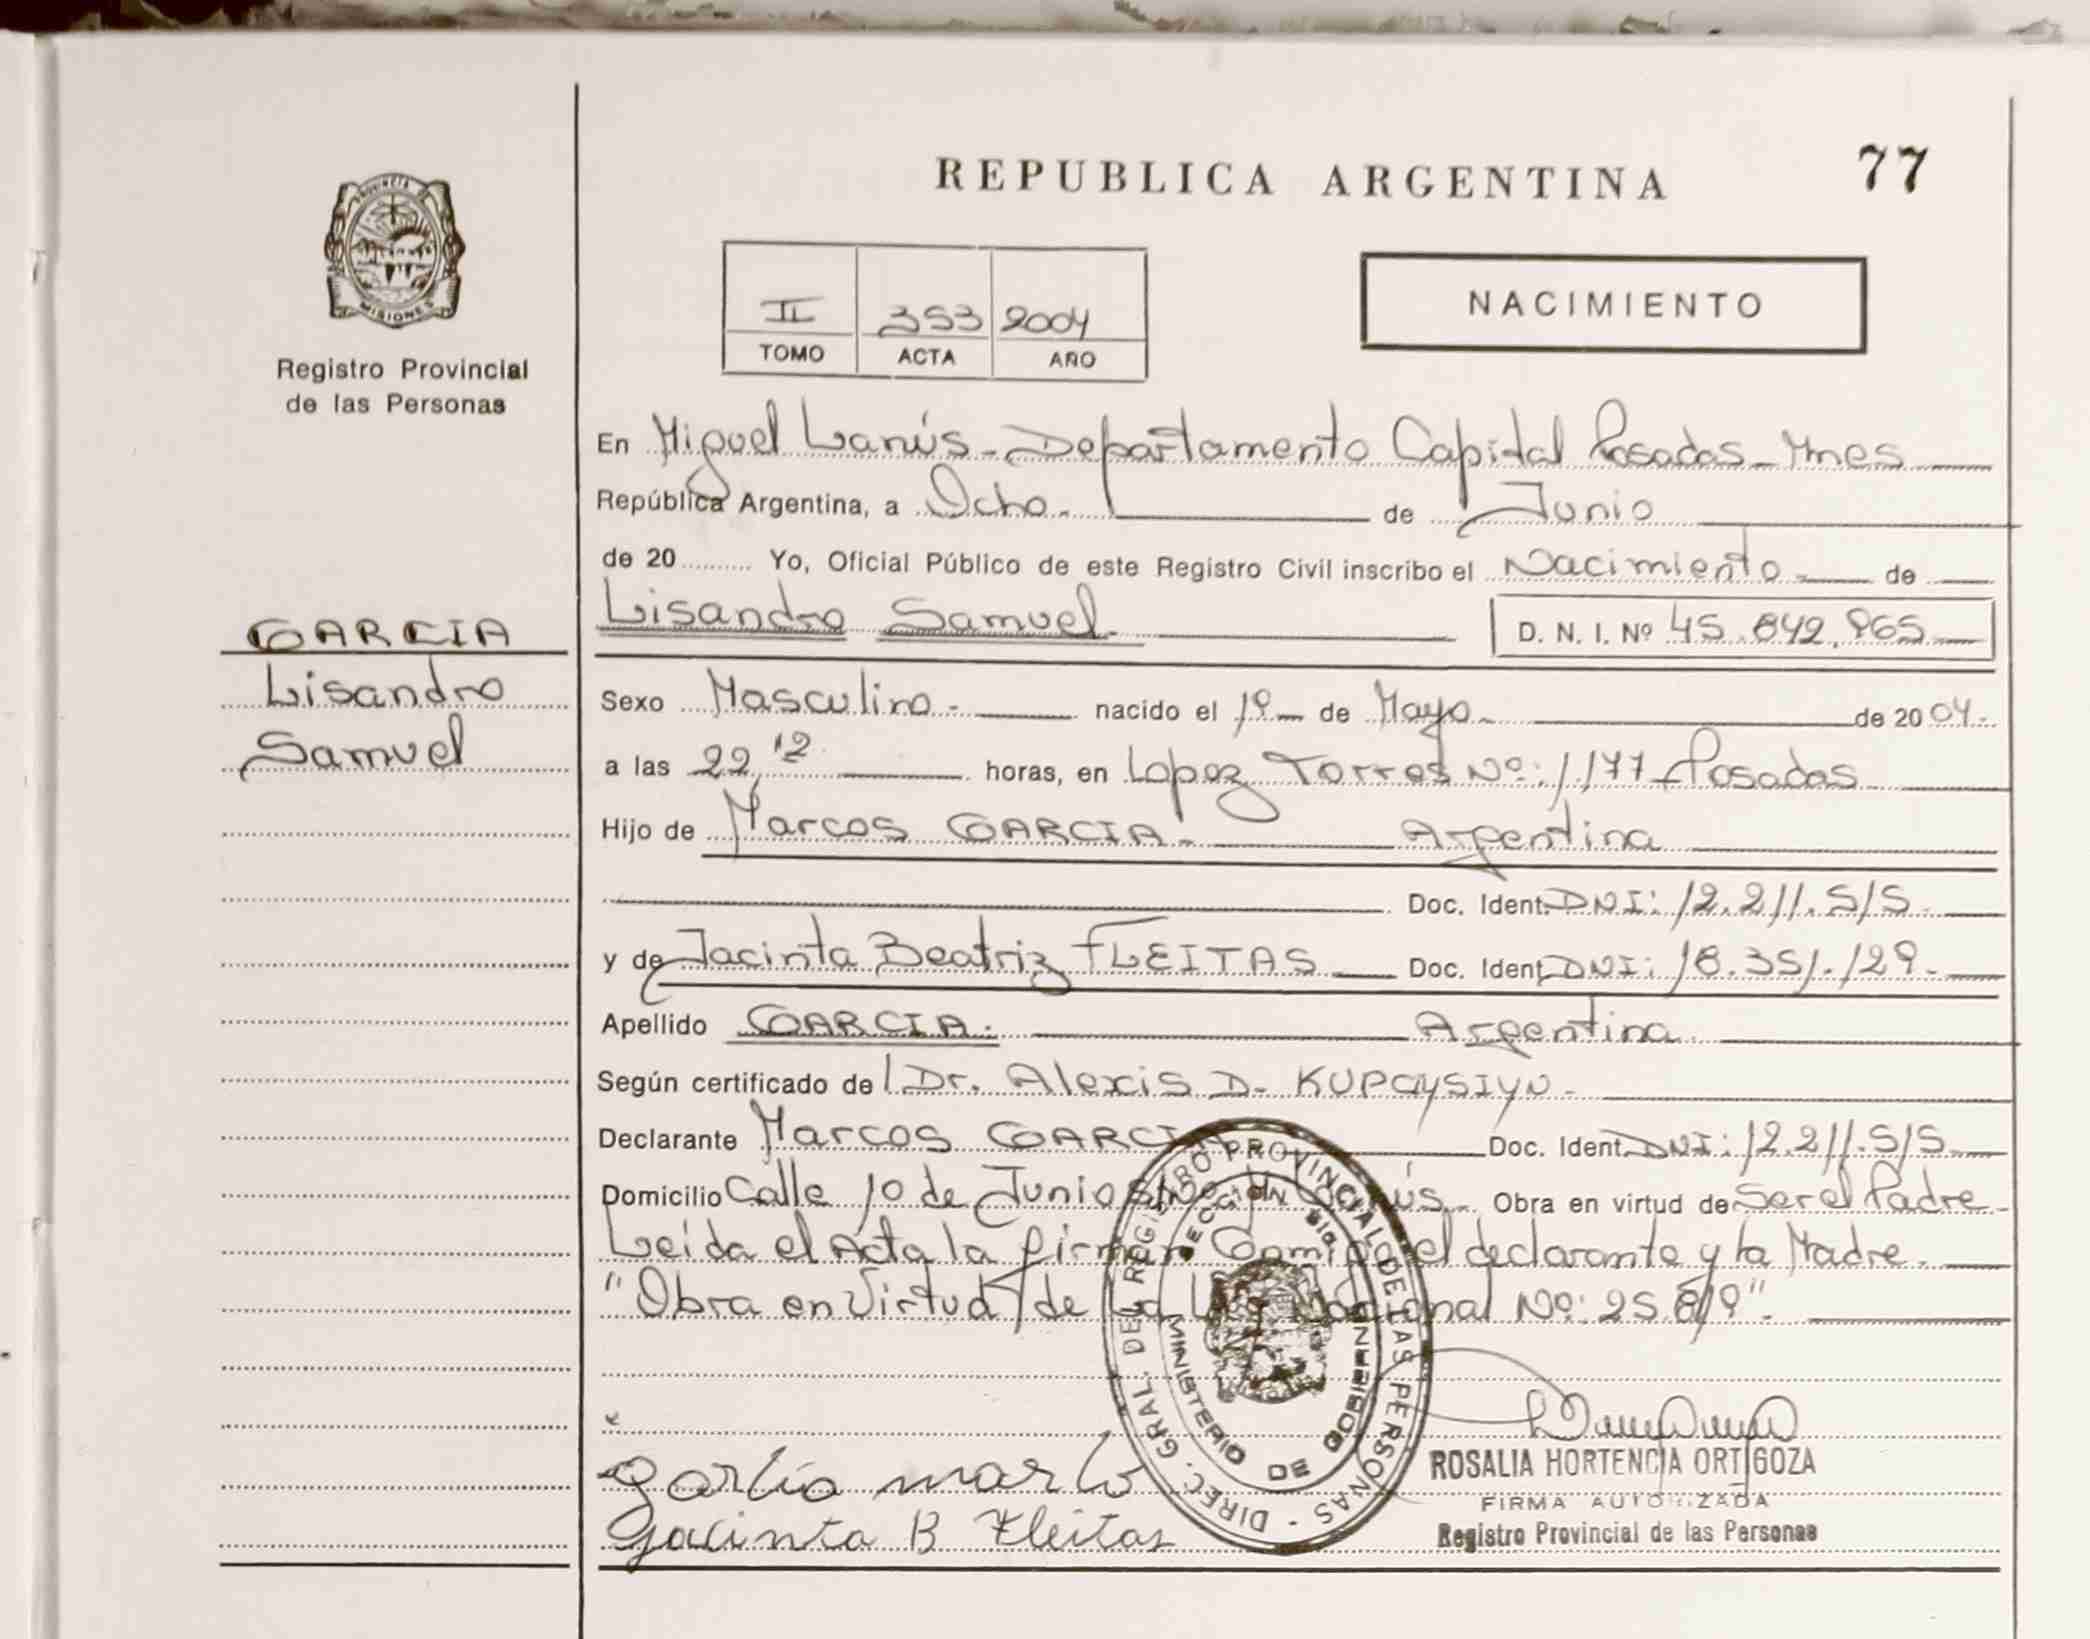 REPUBLICA ARGENTINA
77
PROVINCIA DE
MISIONES
Registro Provincial
de las Personas
II 353 2004
TOMO ACTA AÑO
NACIMIENTO
En Miguel Lanús - Departamento Capital Posadas - Mnes
República Argentina, a Ocho. de Junio
de 20 ........ Yo, Oficial Público de este Registro Civil inscribo el Nacimiento de
Lisandro Samuel. D. N. I. Nº 45.842.965
GARCIA
Lisandro
Samuel
Sexo Masculino. nacido el 1º de Mayo. de 2004.
a las 22,12 horas, en Lopez Torres Nº: 1177 - Posadas
Hijo de Marcos GARCIA. Argentina
Doc. Ident. DNI: 12.211.515
y de Jacinta Beatriz FLEITAS Doc. Ident. DNI: 18.351.129.
Apellido GARCIA. Argentina.
Según certificado del Dr. Alexis D.
Declarante Marcos GARCIA Doc. Ident. DNI: 12.211.515
Domicilio Calle 10 de Junio Obra en virtud de Ser el Padre
Leída el Acta la firman Conmigo el declarante y la Madre.
"Obra en Virtud de la Ley Nacional Nº: 25.819".
DIREC. GRAL. DEL REGISTRO PROVINCIAL DE LAS PERSONAS -
MINISTERIO DE GOBIERNO
garcia marco
Jacinta B Fleitas
ROSALIA HORTENCIA ORTIGOZA
FIRMA AUTORIZADA
Registro Provincial de las Personas